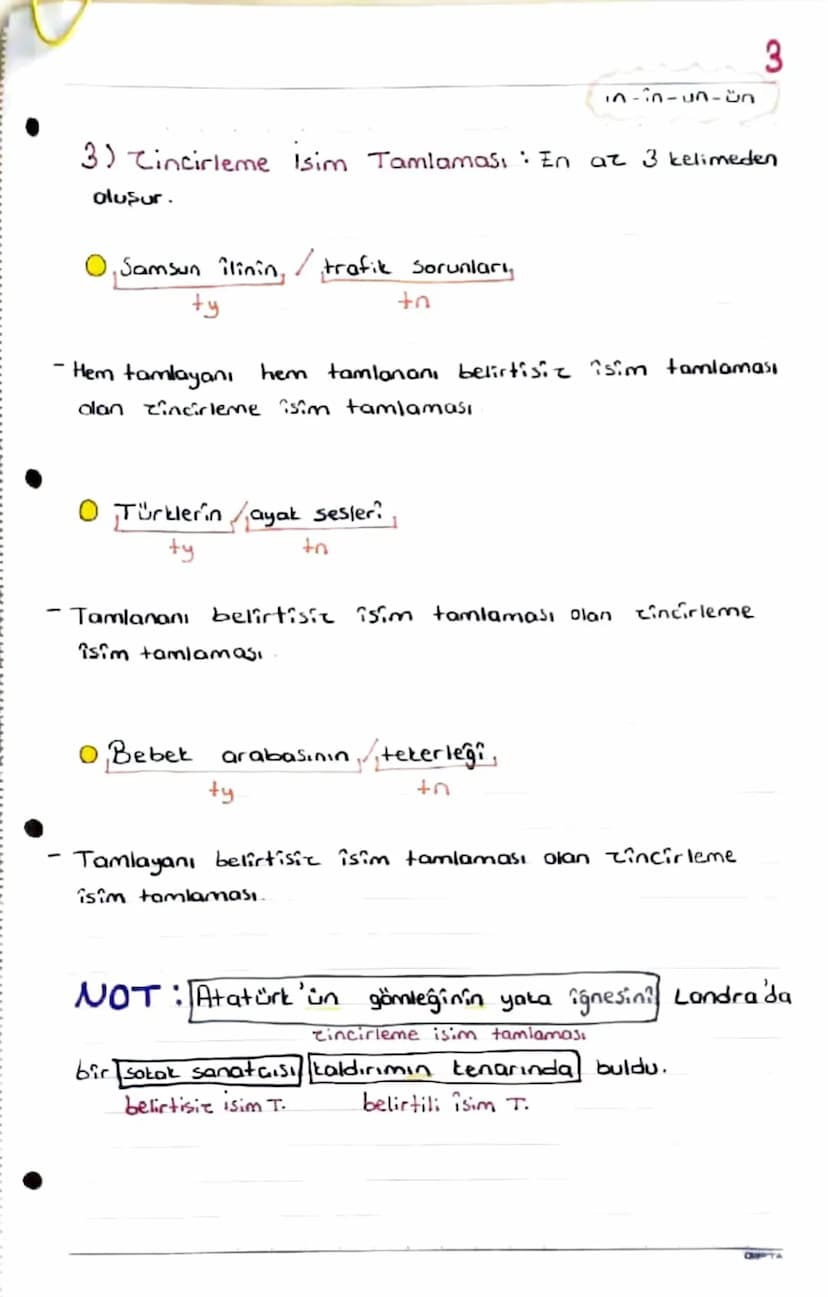 3
ın-in-un-ün
3) Zincirleme İsim Tamlaması : En az 3 kelimeden
oluşur.
Samsun ilinin / trafik sorunları
ty tn
- Hem tamlayanı hem tamlananı belirtisiz isim tamlaması
olan zincirleme isim tamlaması
Türklerin / ayak sesleri
ty tn
- Tamlananı belirtisiz isim tamlaması olan zincirleme
isim tamlaması.
Bebek arabasının / tekerleği
ty tn
- Tamlayanı belirtisiz isim tamlaması olan zincirleme
isim tamlaması.
NOT : Atatürk'ün gömleğinin yaka iğnesini Londra'da
zincirleme isim tamlaması
bir sokak sanatçısı kaldırımın kenarında buldu.
belirtisiz isim T. belirtili isim T.